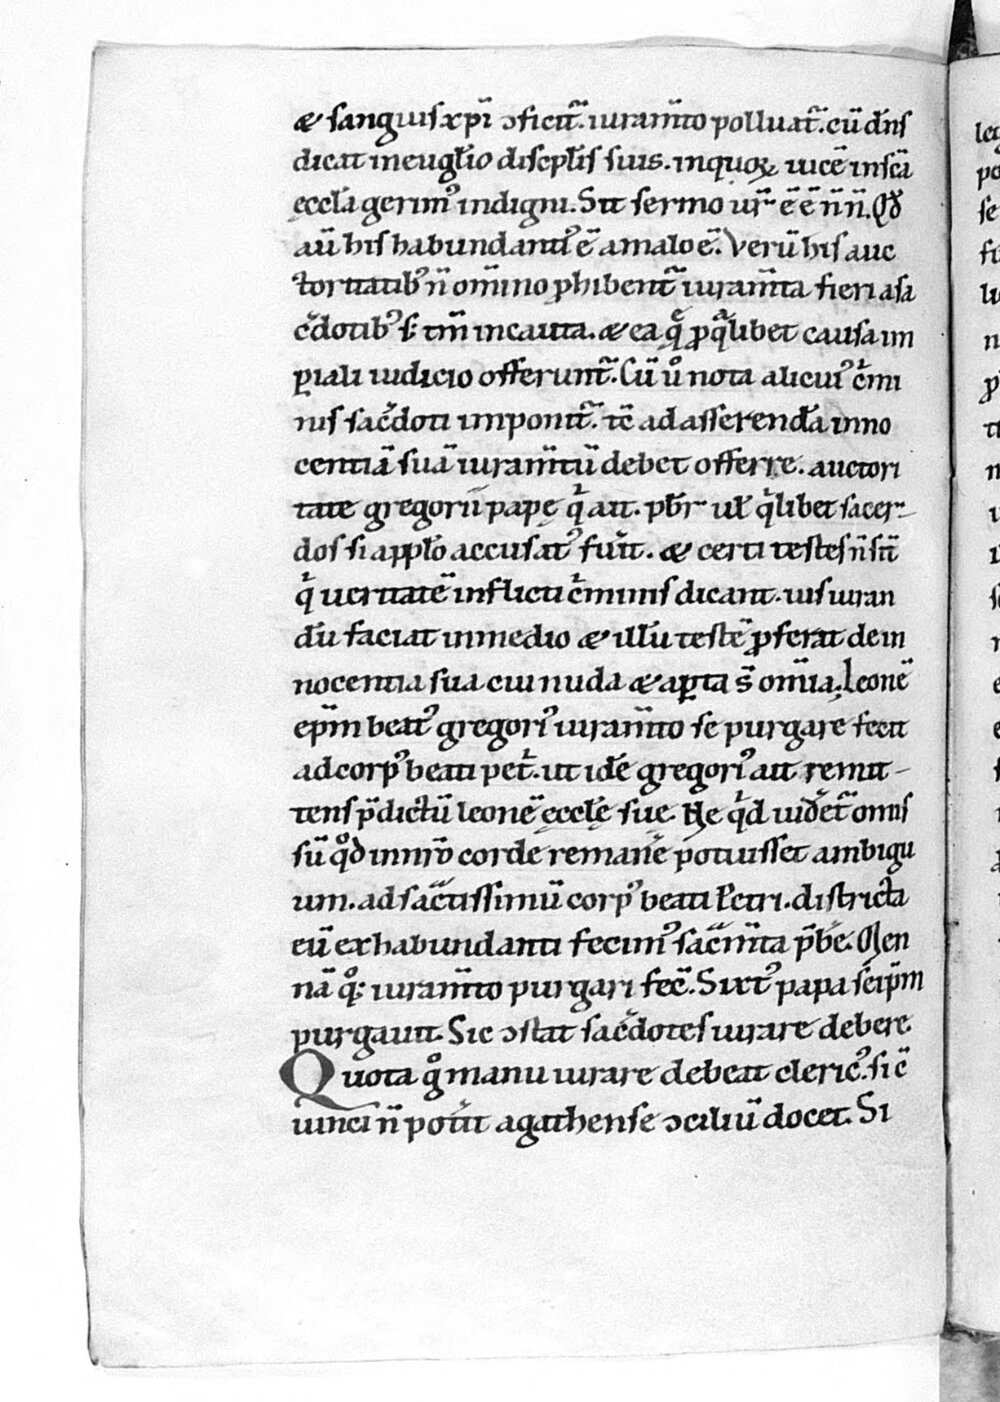 & sanguis xp̄i ↄficit̄. iuram̄to polluat̄. cū dn̄s
dicat in eugl̄io discipl̄is suis. in quoꝝ uice in sc̄a
ęccl̄a gerimꝰ indigni. Sit sermo ur̄ ē ē n̄ n̄. Qd̄
aū his habundantiꝰ ē a malo ē. Verū his auc
toritatibꝰ n̄ om̄ino ꝓhibent̄ iuram̄ta fieri a sa
c̄dotibꝰ s; tm̄ incauta. & ea q̄ ꝓ q̄libet causa im
ꝑiali iudicio offerunt̄. Cū uͦ nota alicuiꝰ c̄mi
nis sac̄doti imponit̄. tc̄ ad asserendā inno
centiā suā iuram̄tū debet offerre. auctori
tate gregorii papę qͥ ait. pbr̄ ul̄ qͥlibet sacer-
dos si a pplo accusatꝰ fuīt. & certi testes n̄ st̄
qͥ ueritatē inflicti c̄minis dicant. ius iuran
dū faciat in medio & illū testē ꝓferat de in
nocentia sua cui nuda & aꝑta s̄ om̄ia. Leonē
ep̄m beatꝰ gregoriꝰ iuram̄to se purgare fecit
ad corpꝰ beati pet̄. ut idē gregoriꝰ ait remit-
tens p̄dictū leonē ęccl̄ę suę. Ne qͥd uidet̄ omis
sū qͦd in nr̄o corde remanē potuisset ambigu
um. ad sac̄tissimū corpꝰ beati Petri. districta
eū ex habundanti fecimꝰ sac̄m̄ta p̄be. Men
nā qͦꝫ iuram̄to purgari fec̄. Sixtꝰ papa seip̄m
purgauit. Sic ↄstat sac̄dotes iurare debere.
Quota gͦ manu iurare debeat clericꝰ. si c̄
uinci n̄ potīt agathense ↄciliū docet. Si